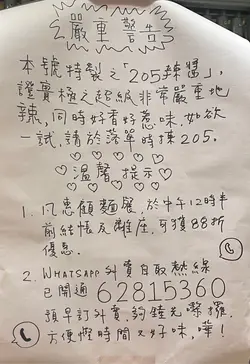 嚴重警告
本號特製之「205辣醬」,
證實極之超級非常嚴重地
辣,同時好香好惹味,如欲
一試,請於落單時揀205.
溫馨提示
1. 凡惠顧麵餐於中午12時半
前結帳及離座,可獲88折
優惠.
2. WHATSAPP外賣自取熱線
已開通 62815360
預早訂外賣夠鐘先嚟攞.
方便慳時間又好味,嘩!